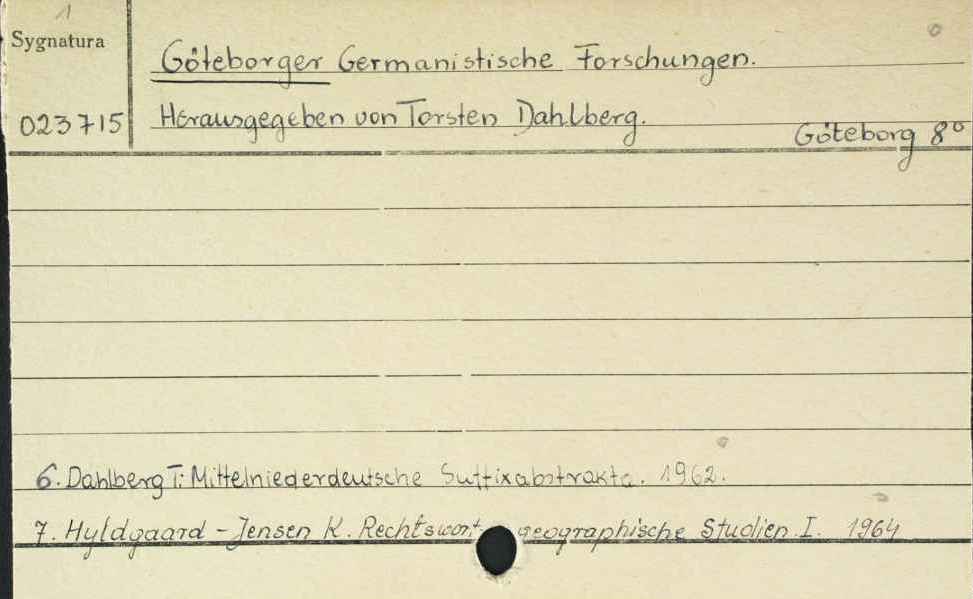 1
Sygnatura
Göteborger Germanistische Forschungen.
023715
Herausgegeben von Torsten Dahlberg.
Göteborg 8°
6. Dahlberg T: Mittelniederdeutsche Suffixabstrakta. 1962.
7. Hyldgaard-Jensen K. Rechtswort geographische Studien I. 1964